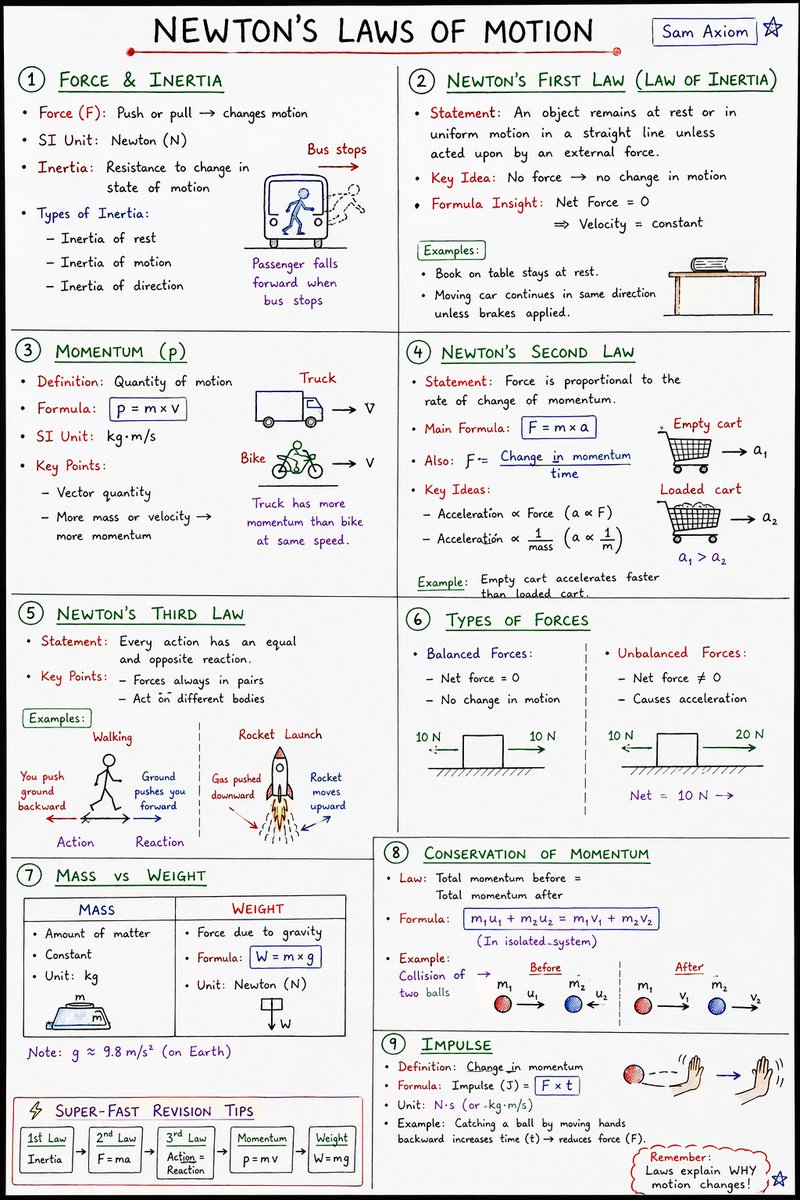 NEWTON'S LAWS OF MOTION
Sam Axiom
1 FORCE & INERTIA
• Force (F): Push or pull → changes motion
• SI Unit: Newton (N)
• Inertia: Resistance to change in
state of motion
• Types of Inertia:
– Inertia of rest
– Inertia of motion
– Inertia of direction
Bus stops
Passenger falls
forward when
bus stops
2 NEWTON'S FIRST LAW (LAW OF INERTIA)
• Statement: An object remains at rest or in
uniform motion in a straight line unless
acted upon by an external force.
• Key Idea: No force → no change in motion
• Formula Insight: Net Force = 0
⇒ Velocity = constant
Examples:
• Book on table stays at rest.
• Moving car continues in same direction
unless brakes applied.
3 MOMENTUM (p)
• Definition: Quantity of motion
• Formula: p = m × v
• SI Unit: kg·m/s
• Key Points:
– Vector quantity
– More mass or velocity →
more momentum
Truck
→ V
Bike
→ V
Truck has more
momentum than bike
at same speed.
4 NEWTON'S SECOND LAW
• Statement: Force is proportional to the
rate of change of momentum.
• Main Formula: F = m × a
• Also: F = Change in momentum
time
• Key Ideas:
– Acceleration ∝ Force (a ∝ F)
– Acceleration ∝ 1/mass (a ∝ 1/m)
Example: Empty cart accelerates faster
than loaded cart.
Empty cart
→ a₁
Loaded cart
→ a₂
a₁ > a₂
5 NEWTON'S THIRD LAW
• Statement: Every action has an equal
and opposite reaction.
• Key Points: – Forces always in pairs
– Act on different bodies
Examples:
Walking
You push
ground
backward
Ground
pushes you
forward
Action
Reaction
Rocket Launch
Gas pushed
downward
Rocket
moves
upward
6 TYPES OF FORCES
• Balanced Forces:
– Net force = 0
– No change in motion
10 N
10 N
• Unbalanced Forces:
– Net force ≠ 0
– Causes acceleration
10 N
20 N
Net = 10 N →
7 MASS VS WEIGHT
MASS
• Amount of matter
• Constant
• Unit: kg
m
m
WEIGHT
• Force due to gravity
• Formula: W = m × g
• Unit: Newton (N)
W
Note: g ≈ 9.8 m/s² (on Earth)
8 CONSERVATION OF MOMENTUM
• Law: Total momentum before =
Total momentum after
• Formula: m₁u₁ + m₂u₂ = m₁v₁ + m₂v₂
(In isolated system)
• Example:
Collision of →
two balls
Before
m₁
u₁
m₂
u₂
After
m₁
v₁
m₂
v₂
9 IMPULSE
• Definition: Change in momentum
• Formula: Impulse (J) = F × t
• Unit: N·s (or kg·m/s)
• Example: Catching a ball by moving hands
backward increases time (t) → reduces force (F).
Remember:
Laws explain WHY
motion changes!
SUPER-FAST REVISION TIPS
1st Law
Inertia
→
2nd Law
F = ma
→
3rd Law
Action =
Reaction
→
Momentum
p = mv
→
Weight
W = mg